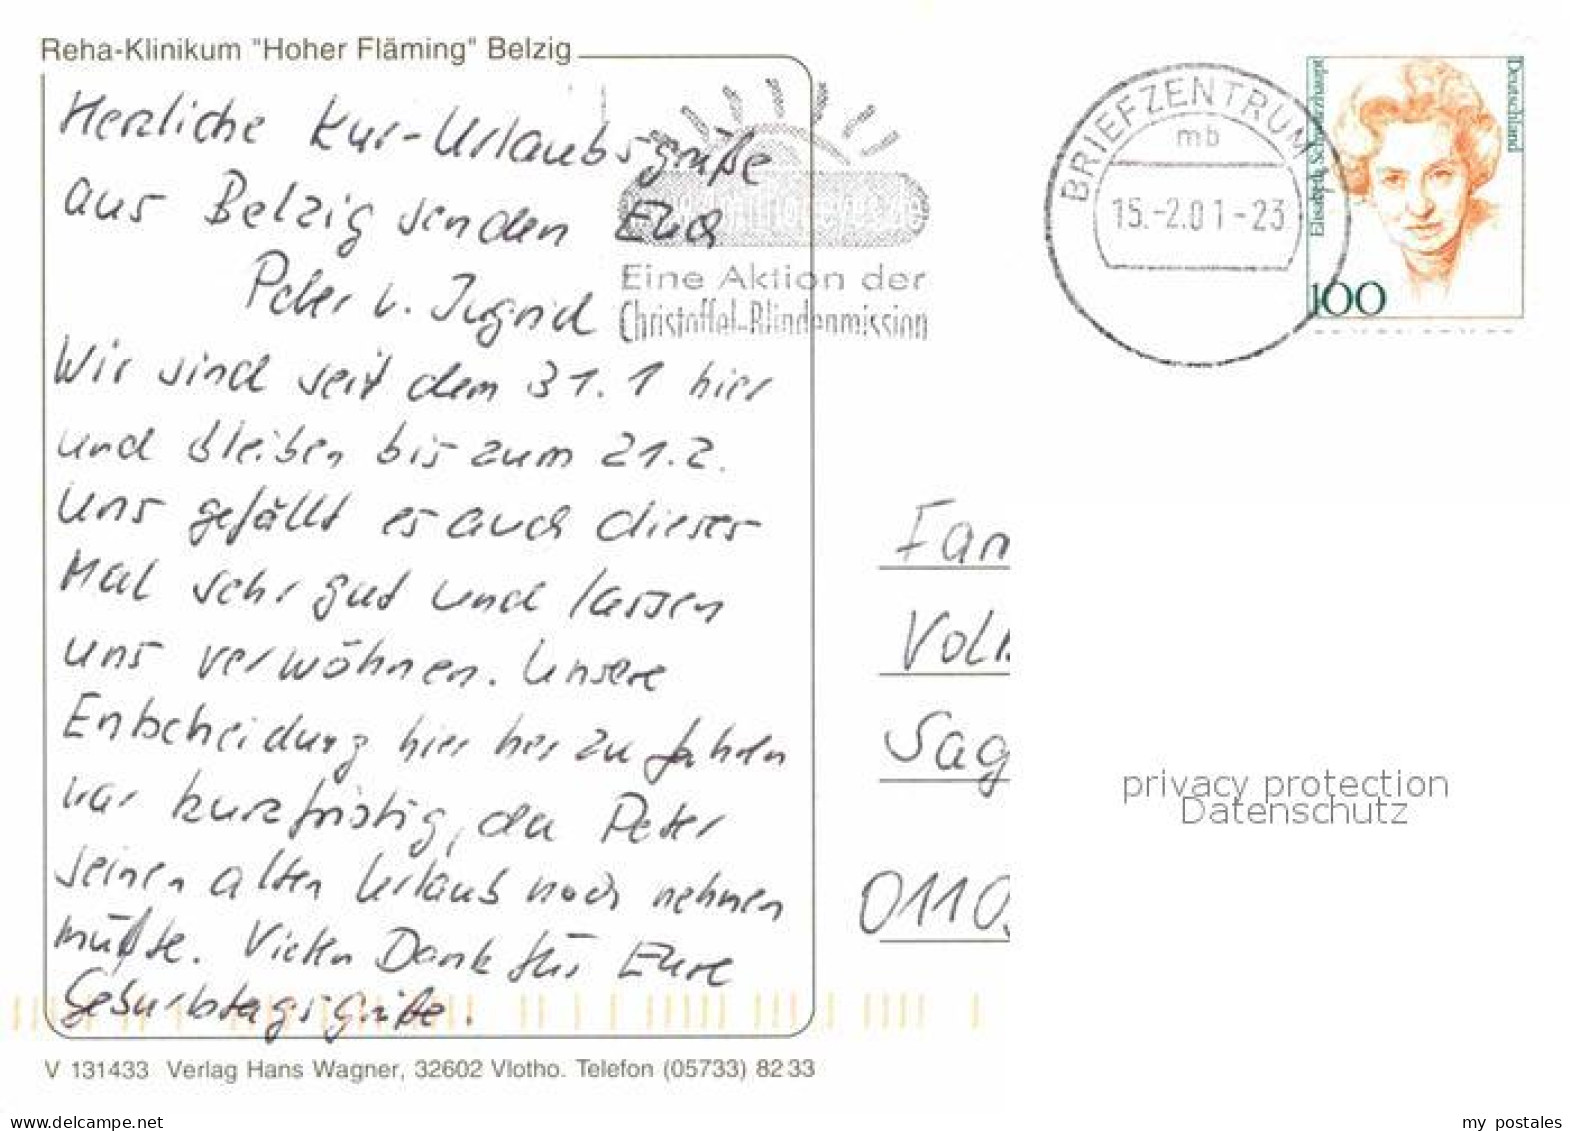 Reha-Klinikum "Hoher Fläming" Belzig
Herzliche Kur-Urlaubsgrüße
aus Belzig senden Euch
Peter u. Ingrid
Wir sind seit dem 31.1 hier
und bleiben bis zum 21.2.
Uns gefällt es auch dieses
Mal sehr gut und lassen
uns verwöhnen. Unsere
Entscheidung hier her zu fahren
war kurzfristig, da Peter
seinen alten Urlaub noch nehmen
mußte. Vielen Dank für Eure
Geburtstagsgrüße.
V 131433 Verlag Hans Wagner, 32602 Vlotho. Telefon (05733) 82 33
Eine Aktion der
Christoffel-Blindenmission
BRIEFZENTRUM
mb
15.-2.01-23
Elisabeth Schwarzhaupt
Deutschland
100
Fam
Volk
Sag
0110
privacy protection
Datenschutz
www.delcampe.net
my_postales